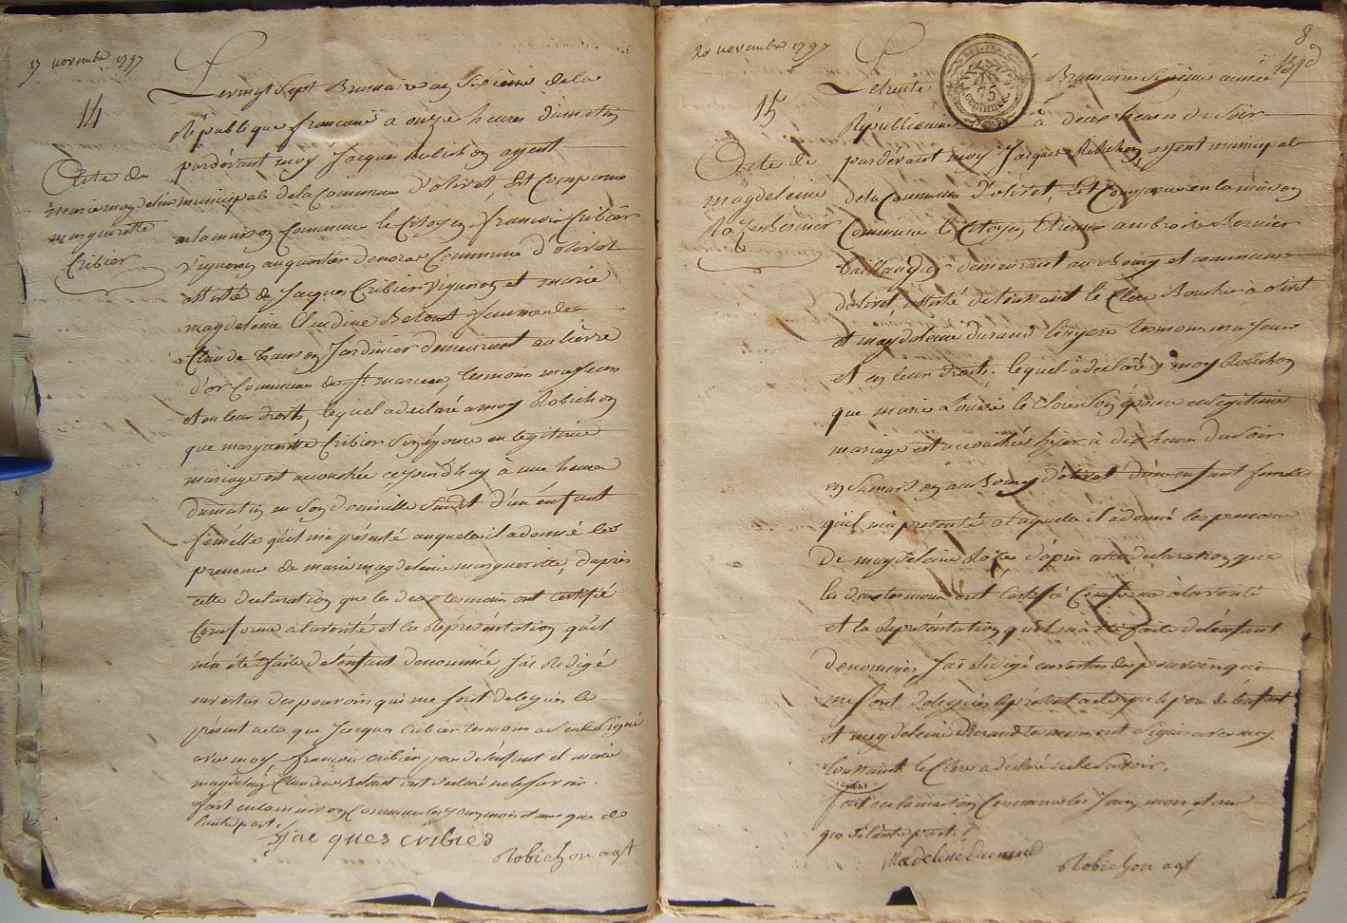 17 novembre 1797
14
Acte de
marie magdeleine
margueritte
Cribier
Le vingt Sept Brumaire an Sixième de la
République française à onze heures du matin
pardevant moy Jacque Robichon agent
municipale de la Commune d'olivet, Est Comparu
a la maison Commune le Citoyen françois Cribier
vigneron au quartier de Commune d'olivet
assisté de Jacques Cribier vigneron et marie
magdeleine Claudine femme de
Claude Jardinier demeurant au lièvre
d'or Commune de St marceau, temoins majeurs
et en leur droits, lequel a déclaré a moy Robichon
que margueritte Cribier Son épouse en legitime
mariage est accouchée ce jourd'huy à une heure
du matin en Son domicille Susdit d'un enfant
femelle qu'il m'a présenté auquel il a donné les
prenoms de marie magdeleine marguerite, d'après
cette declaration que les deux temoins ont certifié
Conforme a la verité et la Représentation qui
m'a été faite de l'enfant denommé, j'ai Rédigé
en vertus des pouvoirs qui me sont delegués le
présent acte que Jacques Cribier temoins a Signé
avec moy, françois cribier père de l'enfant et marie
magdeleine Claudine ont declaré ne le Savoir.
fait en la maison Commune les jour, mois et an que de
l'autre part.
Jacques cribier
Robichon agt
20 novembre 1797
15
Acte de
magdeleine
Rose
8
Le trente Brumaire Sixième année
République à deux heures du Soir
pardevant moy Jacques Robichon, agent municipal
de la Commune d'olivet, Est Comparu en la maison
Commune le Citoyen Etienne ambroise
taillandier demeurant au Bourg et commune
d'olivet, assisté de toussaint le Clerc à olivet
et magdeleine durand temoins majeurs
et en leur droits, lequel a déclaré à moy Robichon
que marie Louise le Clerc Son épouse en legitime
mariage est accouchée hyer à dix heures du soir
en Sa maison au Bourg d'olivet d'un enfant femelle
qu'il m'a présenté a laquelle il a donné les prenoms
De magdeleine Rose, d'après cette declaration que
les deux temoins ont Certifié Conforme à la verité
et la Représentation qui m'a été faite de l'enfant
denommé, J'ai Rédigé en vertus des pouvoirs qui
me sont delegués le présent acte que le père de l'enfant
et magdeleine Durand temoins ont Signé avec moy
toussaint le Clerc a declaré ne le Savoir.
fait en la maison Commune les Jour, mois et an
que de l'autre part.
Madeleine durand
Robichon agt